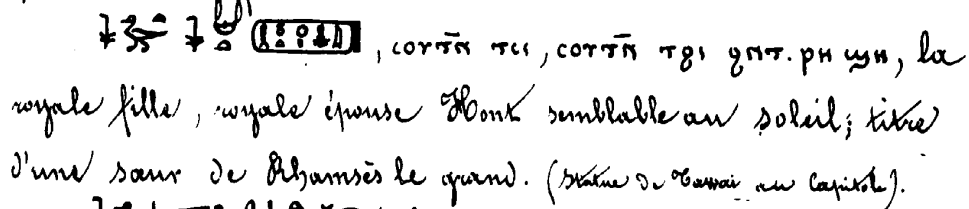 , ⲥⲟⲩⲧⲛ̄ ⲧⲥⲓ, ⲥⲟⲩⲧⲛ̄ ⲧϩⲓ ϩⲛⲧ. ⲣⲏ ϣⲏ, la
royale fille, royale épouse Hont semblable au soleil; titre
d'une sœur de Rhamsès le grand. (Statue de au Capitole).